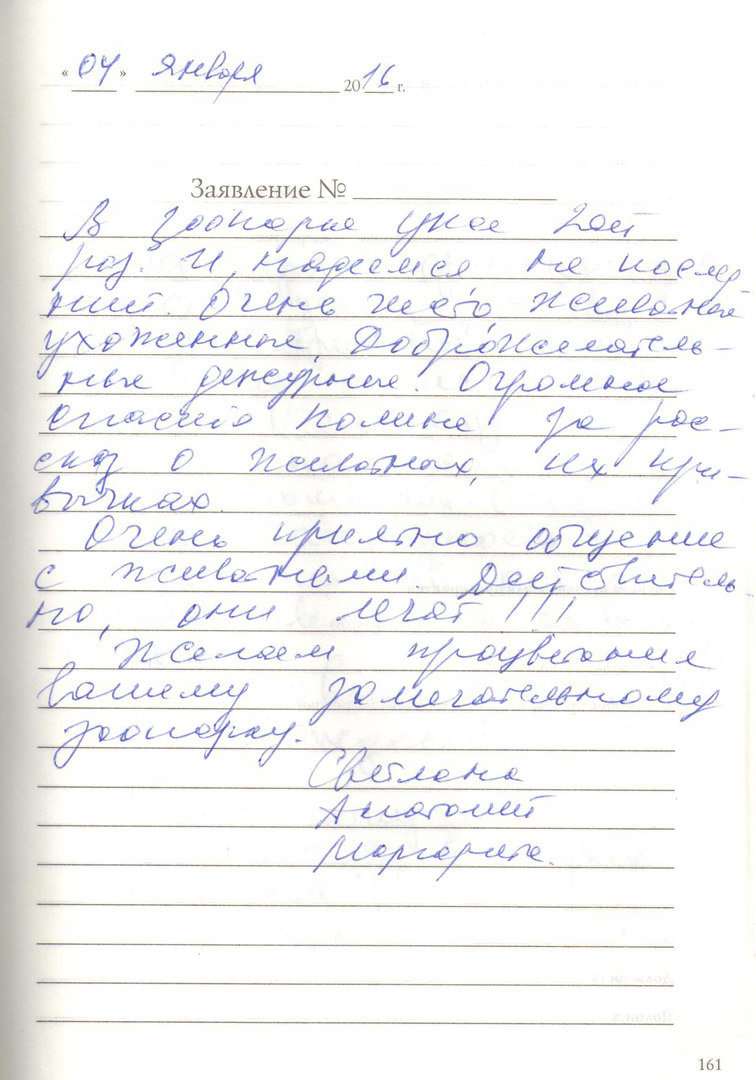 « 04 » января 2016 г.
Заявление №
В зоопарке уже 2ой
раз. И, надеемся не послед
ний. Очень чисто, животные
ухоженные. Доброжелатель-
ные дежурные. Огромное
спасибо Полине за рас-
сказ о животных, их при-
вычках.
Очень приятно общение
с животными. Действитель-
но, они лечат!!!
Желаем процветания
вашему замечательному
зоопарку.
Светлана
Анатолий
Маргарита.
161